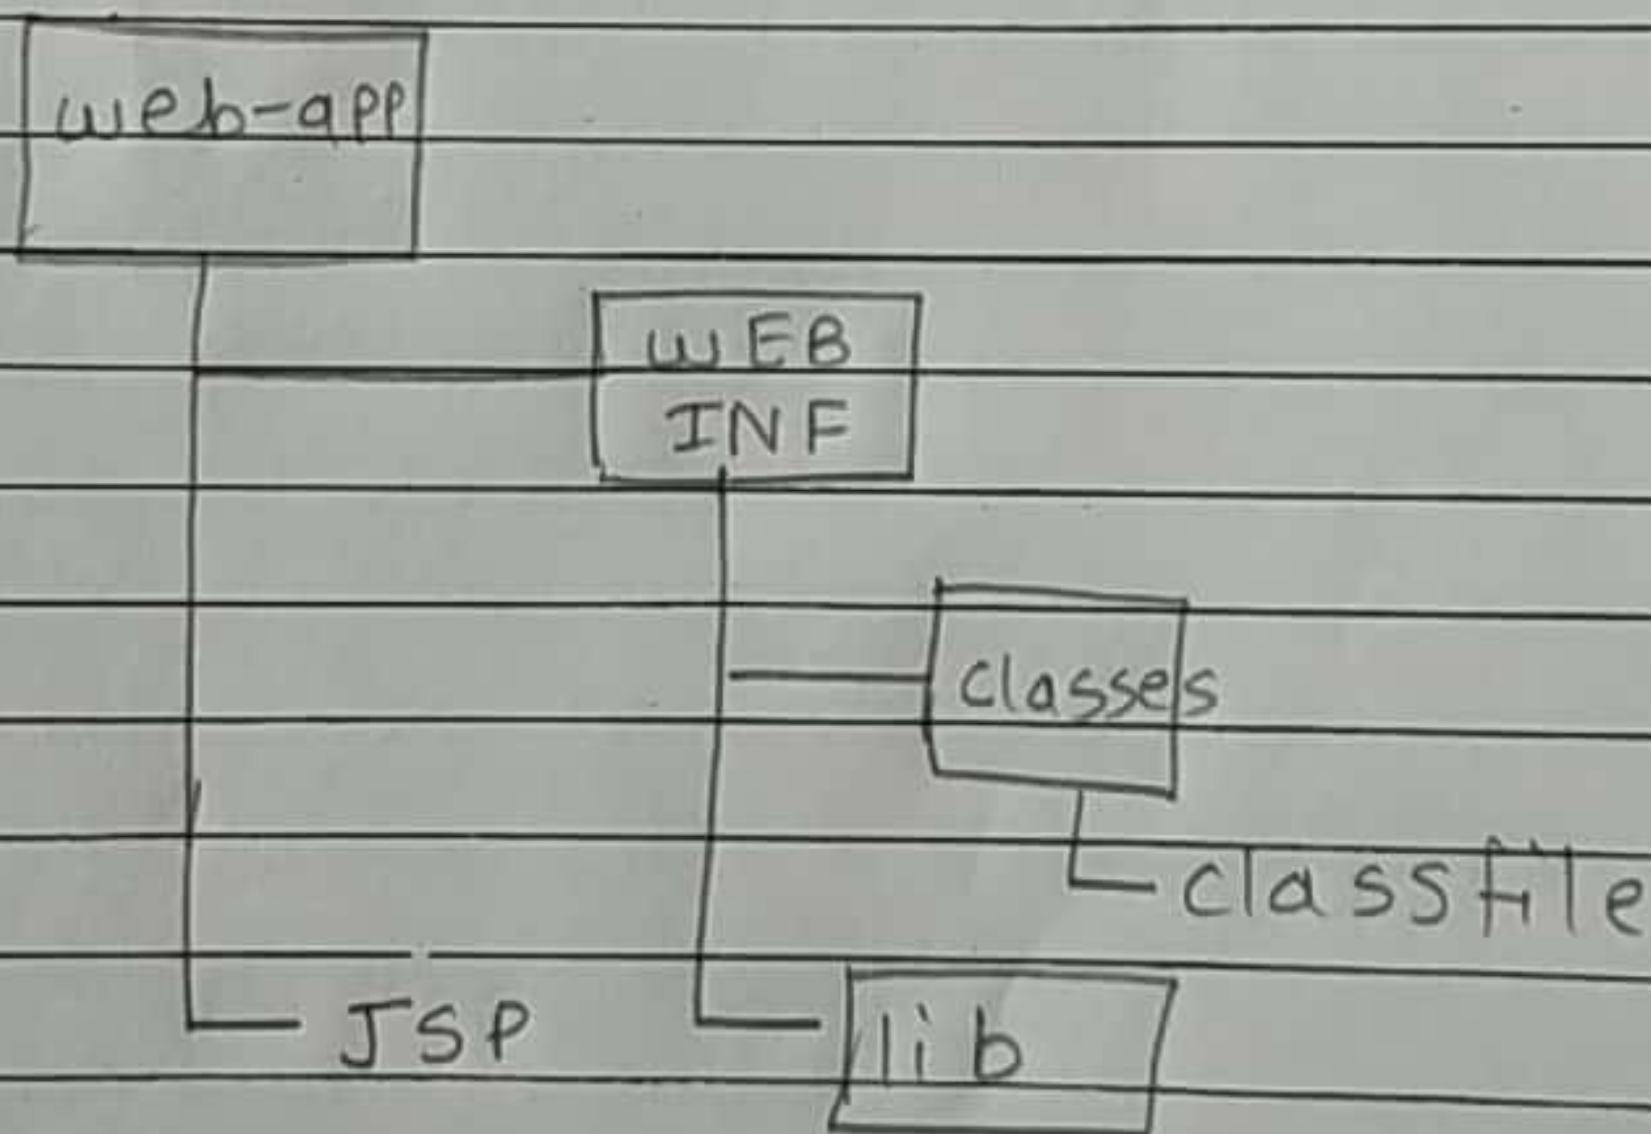 web-app
WEB
INF
classes
classfile
JSP
lib